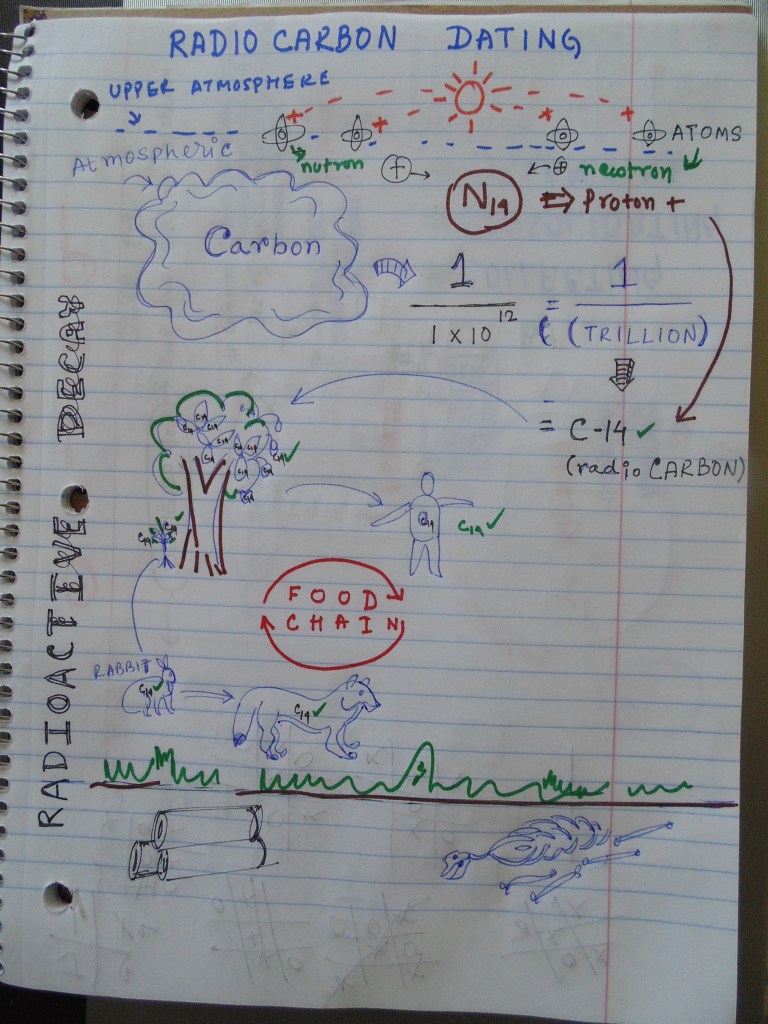 RADIO CARBON DATING
UPPER ATMOSPHERE
ATOMS
Atmospheric
nutron
f
+
newtron
N14
⇒ Proton +
Carbon
1
1 x 10 12
=
1
( (TRILLION)
= C-14 ✓
(radio CARBON)
C14
C14
C14
C14
C14
C14
C14
C14 ✓
C14
C14
C14 ✓
C14
C14 ✓
FOOD
CHAIN
RABBIT
C14 ✓
C14 ✓
RADIOACTIVE DECAY